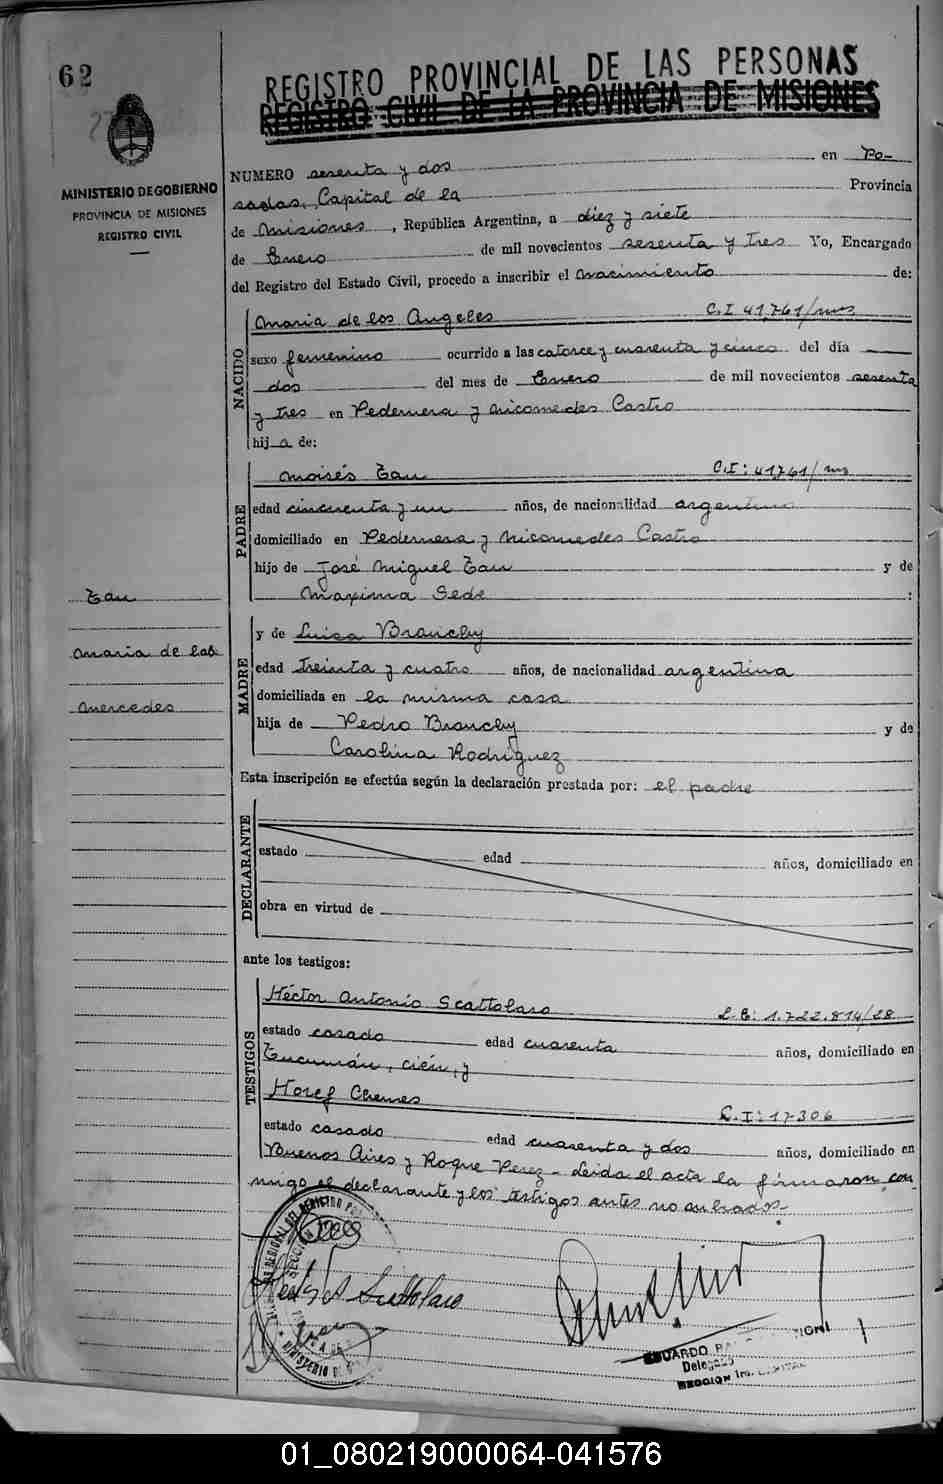 62
REGISTRO PROVINCIAL DE LAS PERSONAS
REGISTRO CIVIL DE LA PROVINCIA DE MISIONES
MINISTERIO DE GOBIERNO
PROVINCIA DE MISIONES
REGISTRO CIVIL
NUMERO sesenta y dos en Po-
sadas, Capital de la Provincia
de Misiones, República Argentina, a diez y siete
de Enero de mil novecientos sesenta y tres Yo, Encargado
del Registro del Estado Civil, procedo a inscribir el Nacimiento de:
NACIDO
Maria de los Angeles C.I 41,761/mns
sexo femenino ocurrido a las catorce y cuarenta y cinco del día
dos del mes de Enero de mil novecientos sesenta
y tres en Pedernera y Nicomedes Castro
hija de:
PADRE
Moisés Tau C.I: 41,761/mns
edad cincuenta y un años, de nacionalidad argentino
domiciliado en Pedernera y Nicomedes Castro
hijo de José Miguel Tau y de
Maxima Sede :
Tau
Maria de las
Mercedes
MADRE
y de Luisa Branchy
edad treinta y cuatro años, de nacionalidad argentina
domiciliada en la misma casa
hija de Pedro Branchy y de
Carolina Rodriguez
Esta inscripción se efectúa según la declaración prestada por: el padre
DECLARANTE
estado edad años, domiciliado en
obra en virtud de
ante los testigos:
TESTIGOS
Héctor Antonio Scattolaro L.E: 1.722.814/28
estado casado edad cuarenta años, domiciliado en
Tucumán, cién, y
Horef Chemes C.I: 17306
estado casado edad cuarenta y dos años, domiciliado en
Buenos Aires y Roque Perez - Leida el acta la firmaron con-
migo el declarante y los testigos antes nombrados.-
EDUARDO
Delegado
SECCION 1ra. CAPITAL
01_080219000064-041576